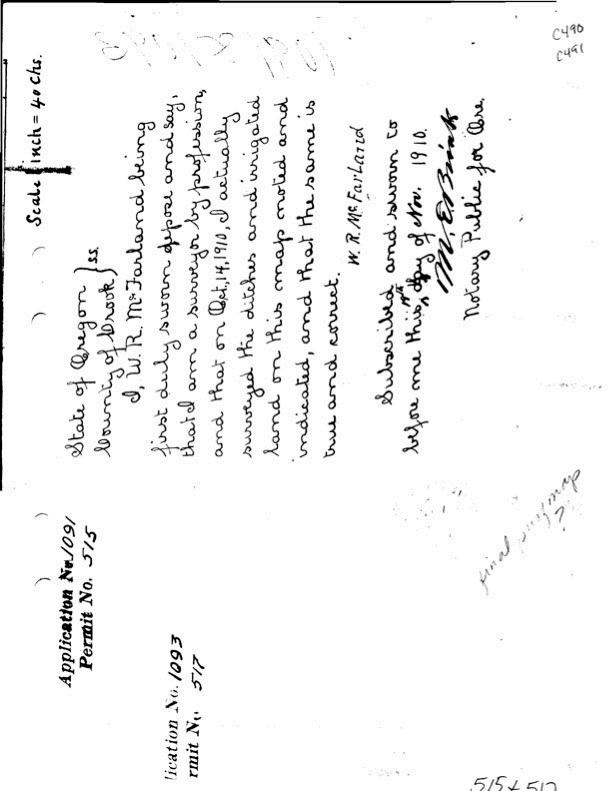 C490
C491
Scale 1 inch = 40 Chs.
State of Oregon } ss.
County of Crook }
I, W. R. McFarland being
first duly sworn depose and say,
that I am a surveyor by profession,
and that on Oct, 14, 1910, I actually
surveyed the ditches and irrigated
land on this map noted and
indicated, and that the same is
true and correct.
W. R. McFarland
Subscribed and sworn to
before me this 19th day of Nov. 1910.
Notary Public for Ore.
Application No. 1091
Permit No. 515
lication No. 1093
rmit No. 517
final map
?
515 & 517